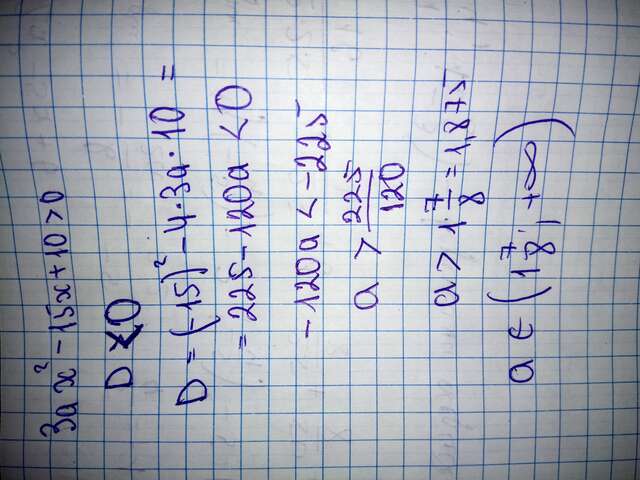 3ax² - 15x + 10 > 0
D < 0
D = (-15)² - 4·3a·10 =
= 225 - 120a < 0
-120a < -225
a > 225/120
a > 1 7/8 = 1,875
a ∈ (1 7/8; +∞)